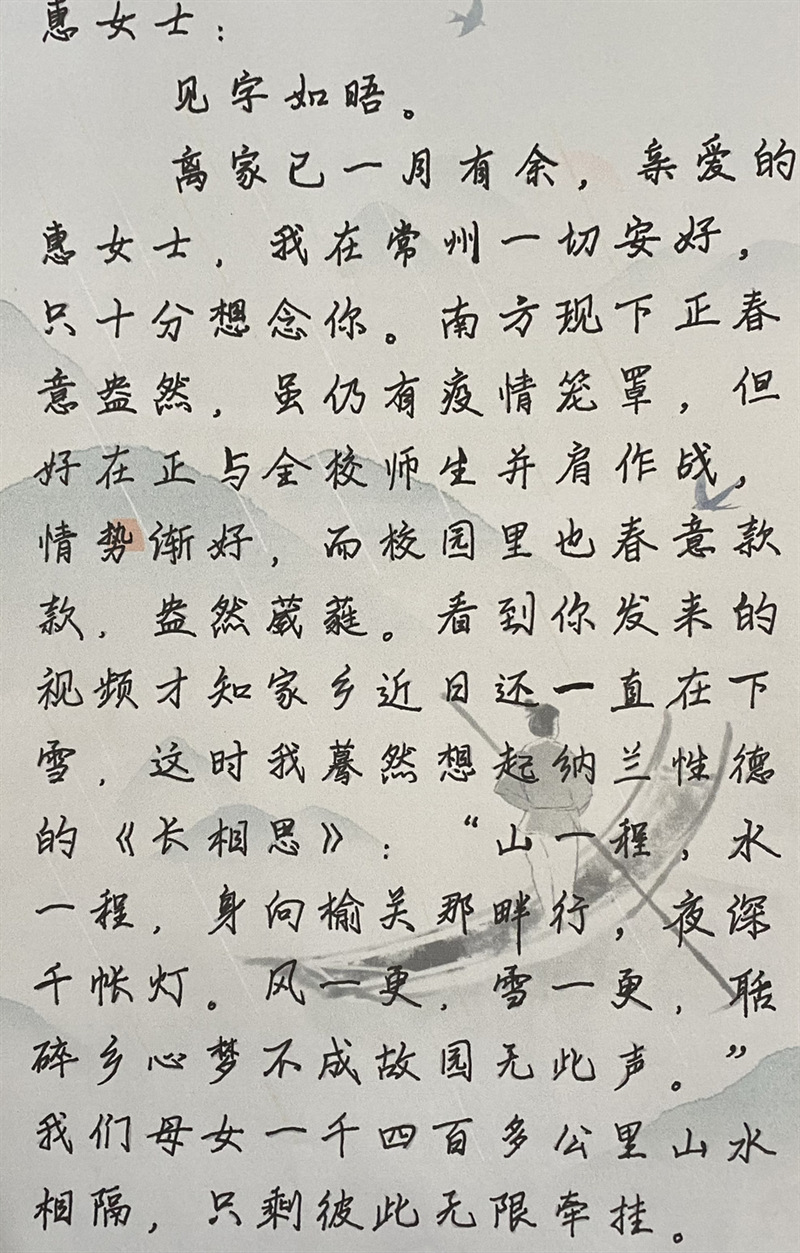 惠女士：
见字如晤。
离家已一月有余，亲爱的
惠女士，我在常州一切安好，
只十分想念你。南方现下正春
意盎然，虽仍有疫情笼罩，但
好在正与全校师生并肩作战，
情势渐好，而校园里也春意款
款，盎然葳蕤。看到你发来的
视频才知家乡近日还一直在下
雪，这时我蓦然想起纳兰性德
的《长相思》：“山一程，水
一程，身向榆关那畔行，夜深
千帐灯。风一更，雪一更，聒
碎乡心梦不成故园无此声。”
我们母女一千四百多公里山水
相隔，只剩彼此无限牵挂。